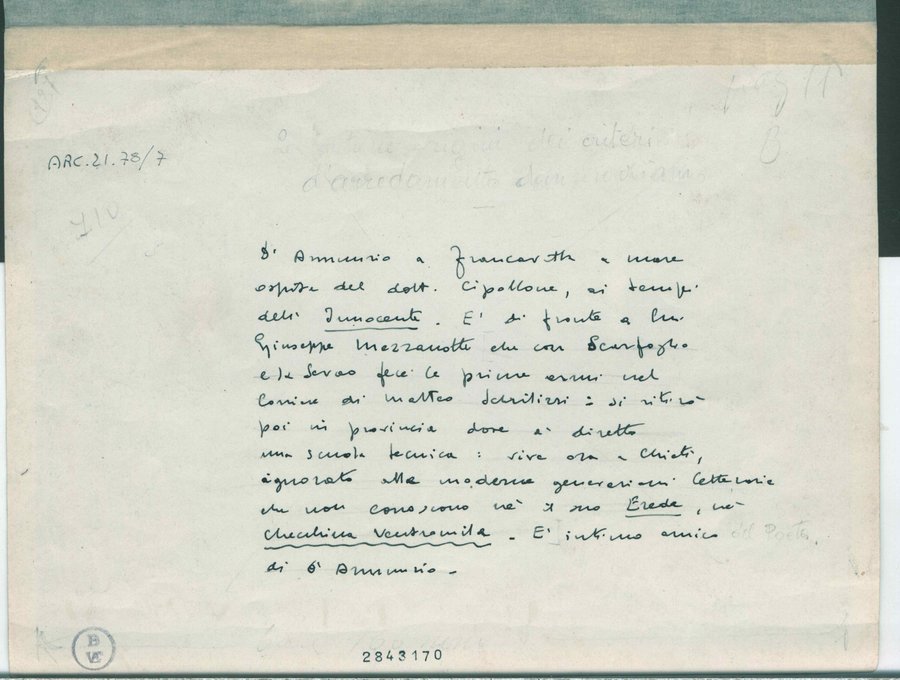 ARC.21.78/7
B
dei criteri
d'arredamento dannunziano
710
d'Annunzio a Francavilla a mare
ospite del dott. Cipollone, ai tempi
dell'Innocente. E' di fronte a lui
Giuseppe Mezzanotte che con Scarfoglio
e la Serao fece le prime armi nel
Corriere di Matteo Schilizzi: si ritirò
poi in provincia dove à diretto
una scuola tecnica: vive ora a Chieti,
ignorato alle moderne generazioni letterarie
che non conoscono nè il suo Erede, nè
Checchina Ventromila. E' intimo amico del Poeta.
di d'Annunzio.
BVE
2843170